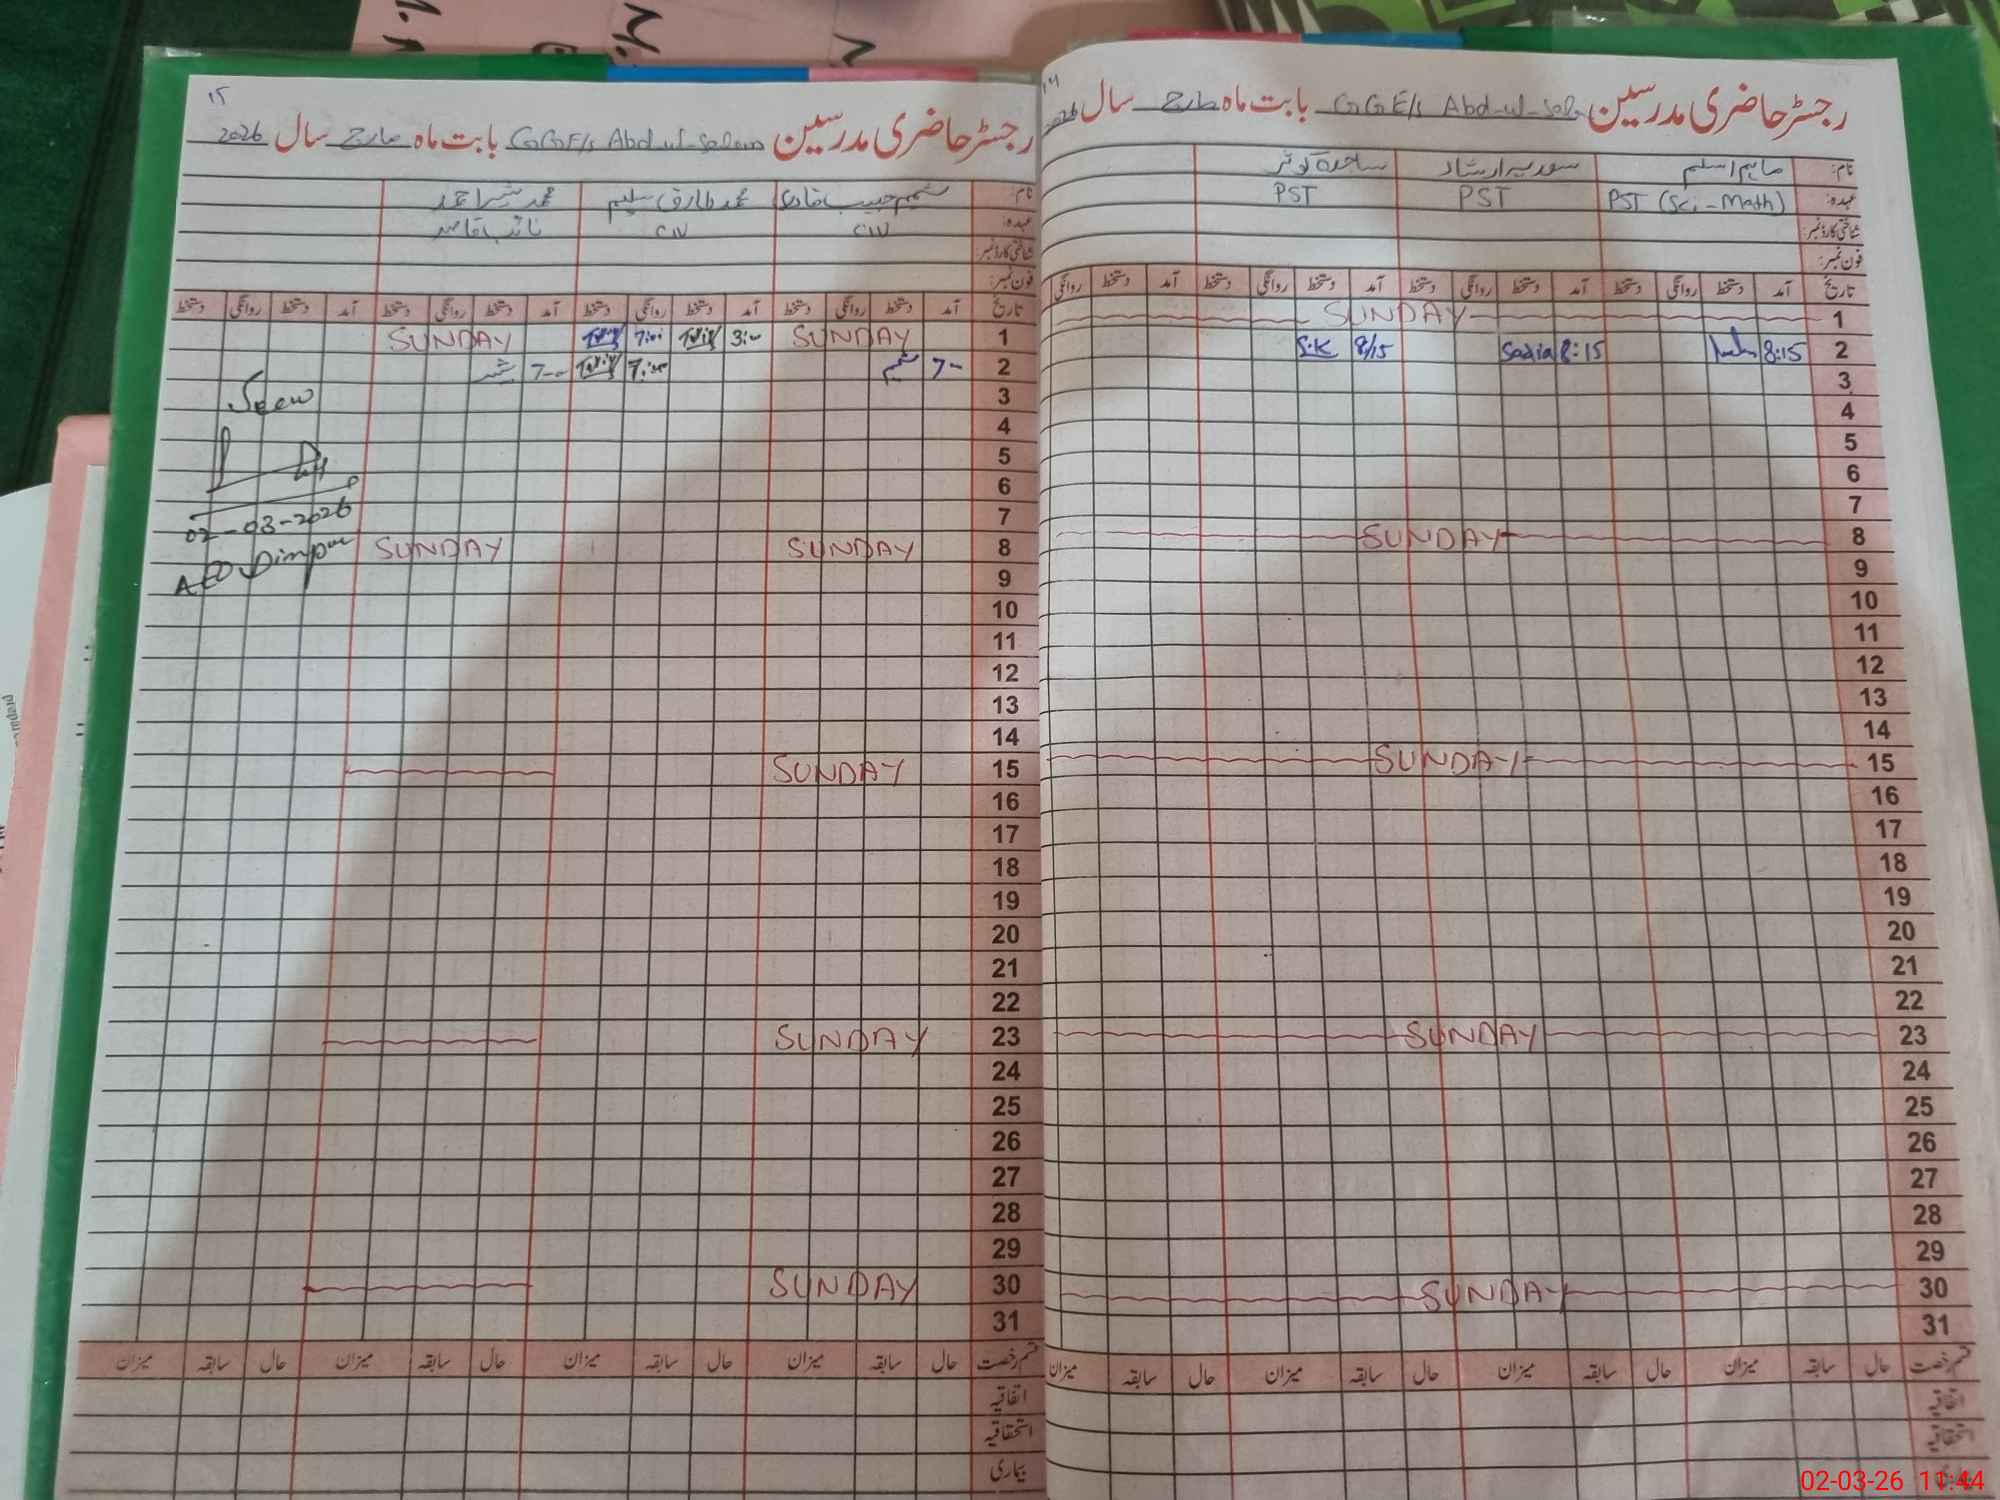 رجسٹر حاضری مدرسین GGE/s Abd-ul-Sala بابت ماہ مارچ سال 2026
نام: ماہم اسلم سعدیہ ارشاد ساجدہ کوثر
عہدہ: PST (Sci-Math) PST PST
شناختی کارڈ نمبر:
فون نمبر:
تاریخ آمد دستخط روانگی دستخط آمد دستخط روانگی دستخط آمد دستخط روانگی دستخط آمد دستخط روانگی
1 SUNDAY
2 8:15 8:15 Sadia 8/15 S.K
3
4
5
6
7
8 SUNDAY
9
10
11
12
13
14
15 SUNDAY
16
17
18
19
20
21
22
23 SUNDAY
24
25
26
27
28
29
30 SUNDAY
31
قسم رخصت حال سابقہ میزان حال سابقہ میزان حال سابقہ میزان حال سابقہ میزان
اتفاقیہ
استحقاقیہ
۱۵
رجسٹر حاضری مدرسین GGE/s Abd-ul-Salam بابت ماہ مارچ سال 2026
نام: شمیم حبیب محمد طارق سلیم محمد
عہدہ: نائب قاصد
شناختی کارڈ نمبر:
فون نمبر:
تاریخ آمد دستخط روانگی دستخط آمد دستخط روانگی دستخط آمد دستخط روانگی دستخط آمد دستخط روانگی دستخط
1 SUNDAY 3:00 7:00 SUNDAY
2 7- شمیم 7:00 7-00
3 Seen
4
5
6
7 02-03-2026
8 SUNDAY SUNDAY
9 AEO
10
11
12
13
14
15 SUNDAY
16
17
18
19
20
21
22
23 SUNDAY
24
25
26
27
28
29
30 SUNDAY
31
قسم رخصت حال سابقہ میزان حال سابقہ میزان حال سابقہ میزان حال سابقہ میزان
اتفاقیہ
استحقاقیہ
بیماری
02-03-26 11:44